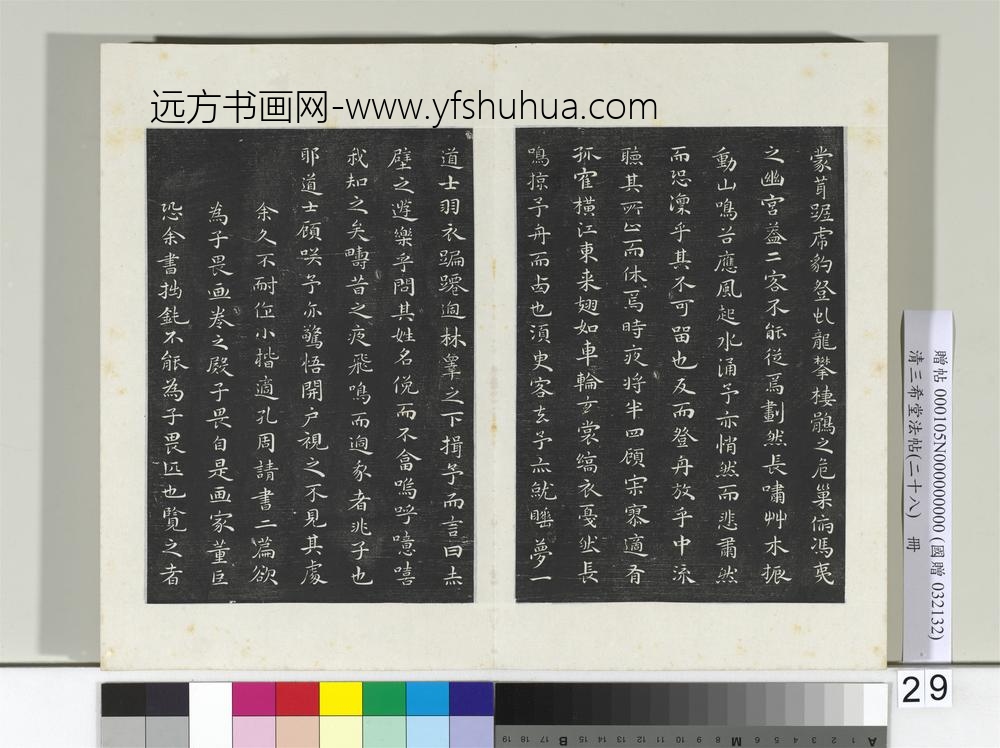 远方书画网-www.yfshuhua.com
蒙茸踞虎豹登虬龍攀棲鶻之危巢俯馮夷
之幽宮葢二客不能從焉劃然長嘯艸木振
動山鳴谷應風起水涌予亦悄然而悲肅然
而恐凜乎其不可留也反而登舟放乎中流
聽其所止而休焉時夜将半四顧宗寥適有
孤寉橫江東来翅如車輪玄裳縞衣戛然長
鳴掠予舟而西也須臾客去予亦就睡夢一
道士羽衣蹁躚過林皋之下揖予而言曰赤
壁之遊樂乎問其姓名俛而不畣嗚呼噫嘻
我知之矣疇昔之夜飛鳴而過我者非子也
耶道士顧咲予亦驚悟開户視之不見其處
余久不耐作小楷適孔周請書二篇欲
為子畏画卷之殿子畏自是画家董巨
恐余書拙鈍不能為子畏匹也覽之者
贈帖 000105N000000000 (國贈 032132)
清三希堂法帖(二十八) 冊
29